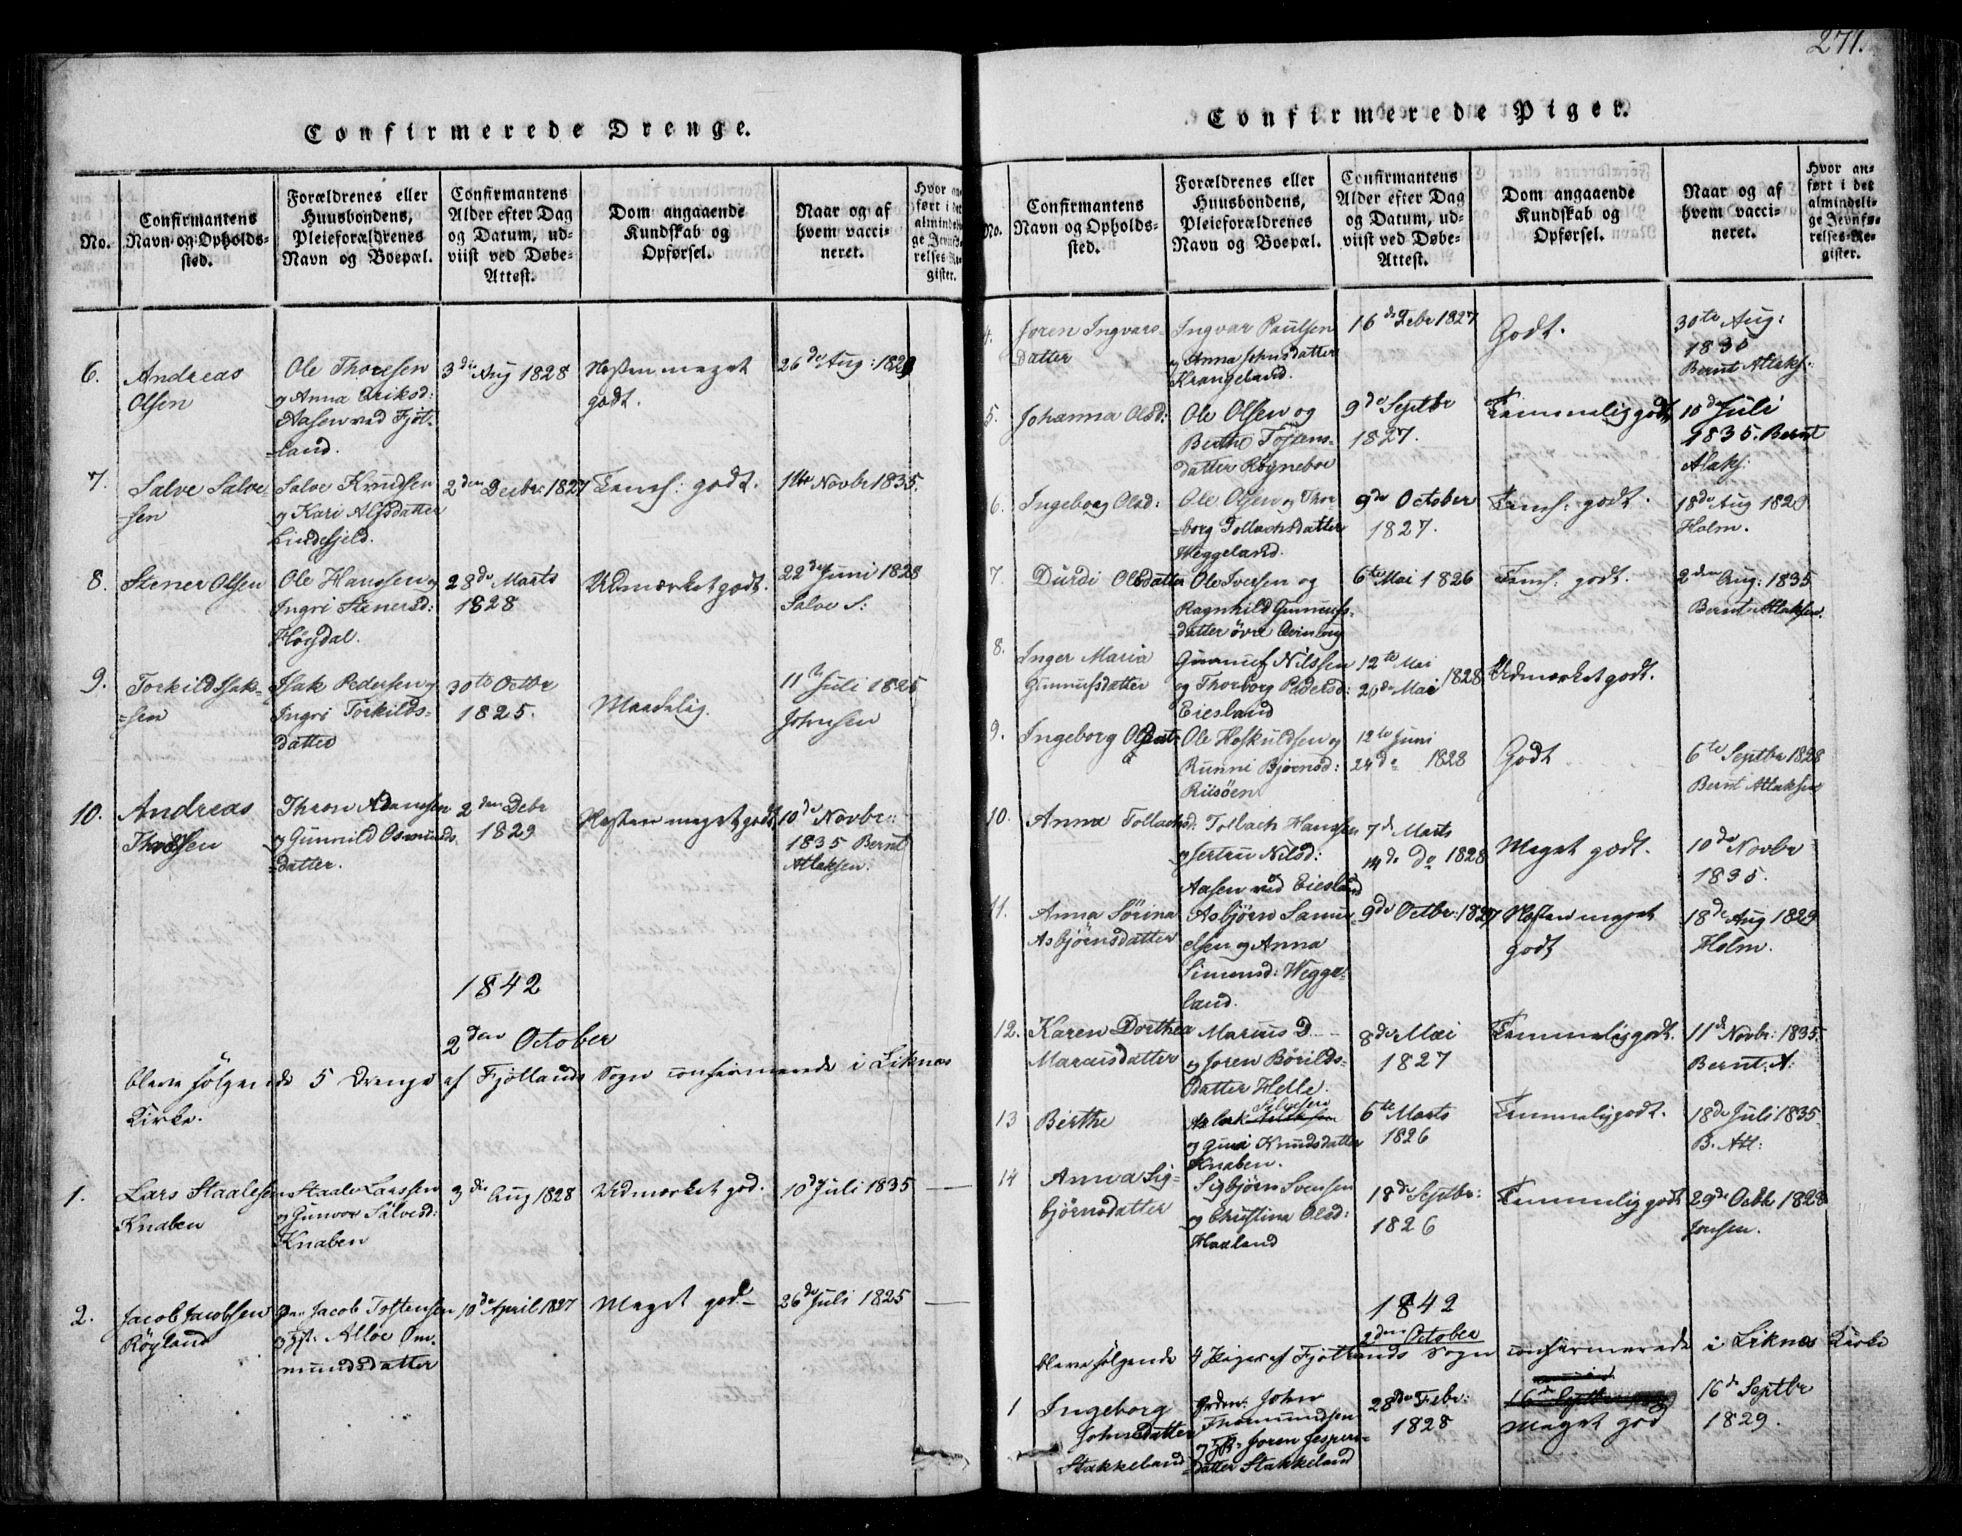 271.
Confirmerede Drenge.
No.
Confirmantens Navn og Opholds-sted.
Forældrenes eller Huusbondens, Pleieforældrenes Navn og Boepæl.
Confirmantens Alder efter Dag og Datum, ud-viist ved Døbe-Attest.
Dom angaaende Kundskab og Opførsel.
Naar og af hvem vacci-neret.
Hvor an-ført i det almindeli-ge Jevnfø-relses-Re-gister.
6. Andreas Olsen
Ole Thoresen
og Anna Eriksd:
Aasen ved Fjot-
land.
3die Aug 1828
Næsten meget
godt.
26de Aug: 1829
7. Salve Salve-
sen
Salve Knudsen
og Kari Alfsdatter
Lindefjeld.
2den Decbr: 1827
Teml: godt.
11te Novbr 1835.
8. Stener Olsen
Ole Hanssen og
Ingri Stenersd:
Høgsdal.
28de Marts
1828
Udmærket godt.
22de Juni 1828
Salve S:
9. Torkild Isak-
sen
Isak Pedersen og
Ingri Torkilds-
datter
30te Octbr
1825.
Maadelig.
11te Juli 1825
Johnsen
10. Andreas
og Gunnild Osmunds
datter.
2den Debr
1829
Næsten meget godt
10de Novbr:
1835 Bernt
Atlaksen.
1842
2den October
bleve følgende 5 Drenge af Fjotlands Sogn confirmerede i Liknes
Kirke.
1. Lars Staalesen
Knaben
Staale Larssen
og Gunvor Salvesd:
Knaben
3die Aug 1828
Udmærket god.
10de Juli 1835
2. Jacob Jacobsen
Røyland
Jacob Tostensen
Alloe Om-
mundsdatter
10de April 1827
Meget god
26de Juli 1825
Confirmerede Piger.
No.
Confirmantens Navn og Opholds-sted.
Forældrenes eller Huusbondens, Pleieforældrenes Navn og Boepæl.
Confirmantens Alder efter Dag og Datum, ud-viist ved Døbe-Attest.
Dom angaaende Kundskab og Opførsel.
Naar og af hvem vacci-neret.
Hvor an-ført i det almindeli-ge Jevnfø-relses-Re-gister.
4. Joren Ingvars-
datter
Ingvar Paulsen
og Anna Johnsdatter
Krangeland.
16de Febr 1827
Godt.
30te Aug:
1835
Bernt Atlaks:
5. Johanna Olsd:
Ole Olsen og
Berthe Tostens-
datter Røgneboe
9de Septbr
1827.
Temmelig godt
10de Juli
1835. Bernt
Atlaks:
6. Ingeborg Olsd:
Ole Olsen og Thor-
borg Tollachsdatter
Weggeland.
9de October
1827.
Teml: godt.
18de Aug 1829
Holm.
7. Durdi Olsdatter
Ole Iversen og
Ragnhild Gunnufs-
datter øvre
6te Mai 1826
Teml: godt.
2den Aug: 1835
Bernt Atlaksen.
8. Inger Maria
Gunnufsdatter
Gunnuf Nilssen
og Thorborg Pedersd:
Eiesland
12te Mai
20de Mai 1828
Udmærket godt.
9. Ingeborg
Ole Hoskuldsen og
Runni Bjørnsd:
Risøen
12te Juni
24de 1828
Godt
6te Septbr 1828
Bernt Atlaksen
10. Anna Tollachsd:
Tollach Hanssen
og Jertru Nilsd:
Aasen ved Eiesland
7de Marts
14de Do 1828
Meget godt.
10de Novbr
1835.
11. Anna Sørina
Asbjørnsdatter
Asbjørn Samu-
elsen og Anna
Simensd: Wegge-
land.
9de Octbr: 1827
Næsten meget
godt
18de Aug 1829
Holm.
12. Karen Dorthea
Marcusdatter
Marcus D
og Joren Børilds-
datter Helle.
8de Mai
1827
Temmelig godt.
11te Novbr: 1835.
Bernt. A:
13 Berthe
Aslak Salvesen
og Guri Knudsdatter
Knaben.
6te Marts
1826
Temmelig godt.
18de Juli 1835
B. Atl:
14 Anna Sig-
bjørnsdatter
Sigbjørn Svensen
og Christina Olsd:
Haaland
18de Septbr:
1826
Temmelig godt
29de Octbr 1828
Jonsen.
1842
2den October
bleve følgende 4 Piger af Fjotlands Sogn confirmerede i Liknes Kirke
1 Ingeborg
Johnsdatter
Stakkeland
John
Thomundsen
og Joren Jespers-
datter Stakkeland
28de Febr:
1828
Meget god
16de Septbr
1829.